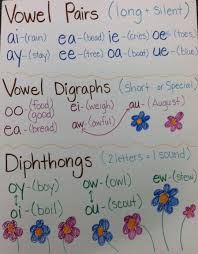 Vowel Pairs (long + silent)
ai-(rain) ea-(bead) ie-(cries) oe-(toes)
ay-(stay) ee-(tree) oa-(boat) ue-(blue)
Vowel Digraphs (short or Special)
oo-(food) (good) ei-(weigh) au-(August)
ea-(bread) aw-(awful)
Diphthongs (2 letters = 1 sound)
oy-(boy) ow-(owl) ew-(stew)
oi-(boil) ou-(scout)